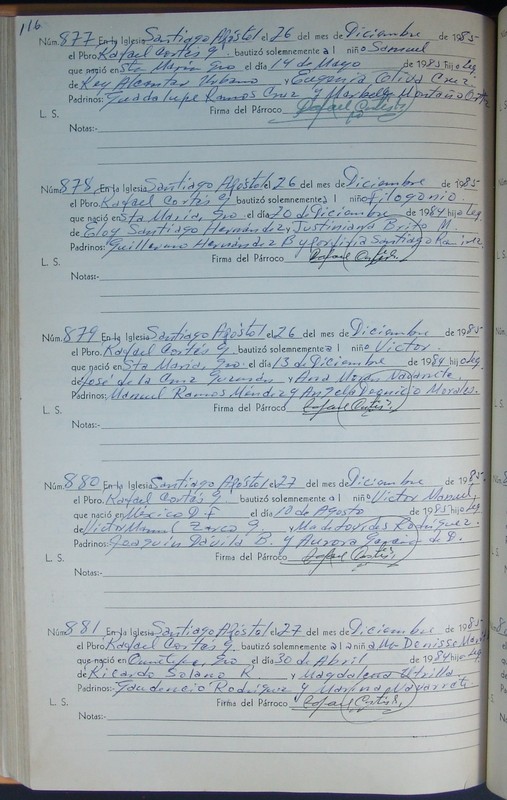 116
Núm. 877 En la Iglesia Santiago Apóstol el 26 del mes de Diciembre de 1985
el Pbro. Rafael Cortés G. bautizó solemnemente a l niño Samuel
que nació en Sta María Gro el día 14 de Mayo de 1985 hijo Leg.
de Rey Alcantar y Eugenia Oliva Cruz
Padrinos: Guadalupe Ramos Cruz y Marbella Montaño
L. S. Firma del Párroco Rafael Cortés
Notas:-
Núm. 878 En la Iglesia Santiago Apóstol el 26 del mes de Diciembre de 1985
el Pbro. Rafael Cortés G. bautizó solemnemente a l niño Filogonio
que nació en Sta María, Gro el día 20 de Diciembre de 1984 hijo Leg.
de Eloy Santiago Hernández y Justiniana Brito M.
Padrinos: Guillermo Hernández B y Porfiria Santiago Ramírez
L. S. Firma del Párroco Rafael Cortés
Notas:-
Núm. 879 En la Iglesia Santiago Apóstol el 26 del mes de Diciembre de 1985
el Pbro. Rafael Cortés G. bautizó solemnemente a l niño Víctor
que nació en Sta María, Gro el día 13 de Diciembre de 1984 hijo Leg
de José de la Cruz y Ana Navarrete
Padrinos: Manuel Ramos Méndez y Angela Morales.
L. S. Firma del Párroco Rafael Cortés
Notas:-
Núm. 880 En la Iglesia Santiago Apóstol el 27 del mes de Diciembre de 1985
el Pbro. Rafael Cortés G. bautizó solemnemente a l niño Víctor Manuel
que nació en México D. F. el día 10 de Agosto de 1985 hijo Leg
de Víctor Manuel G. y Ma de Rodríguez.
Padrinos: Joaquín Dávila B. y Aurora García de D.
L. S. Firma del Párroco Rafael Cortés
Notas:-
Núm. 881 En la Iglesia Santiago Apóstol el 27 del mes de Diciembre de 1985
el Pbro. Rafael Cortés G. bautizó solemnemente a la niña Ma Denisse
que nació en Gro el día 30 de Abril de 1984 hija Leg
de Ricardo Solano R. y Magdalena Utrilla
Padrinos: Gaudencio Rodríguez y Marina Navarrete
L. S. Firma del Párroco Rafael Cortés
Notas:-